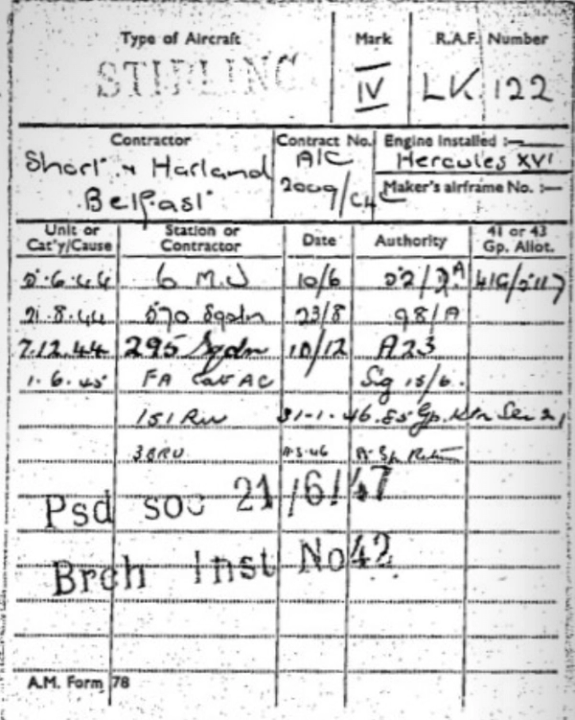 Type of Aircraft Mark R.A.F. Number
STIRLING IV LK 122
Contractor Contract No. Engine Installed :—
Short & Harland A/C Hercules XVI
Belfast Maker's airframe No. :—
Unit or Cat'y/Cause Station or Contractor Date Authority 41 or 43 Gp. Allot.
5.6.44 6 M.U 10/6
21.8.44 570 Sqdn 23/8 98/A
7.12.44 295 Sqdn 10/12 A23
1.6.45 FA Cat AC Sig 15/6.
151 RU 31-1-46
Psd soc 21/6/47
Brch Inst No 42
A.M. Form 78